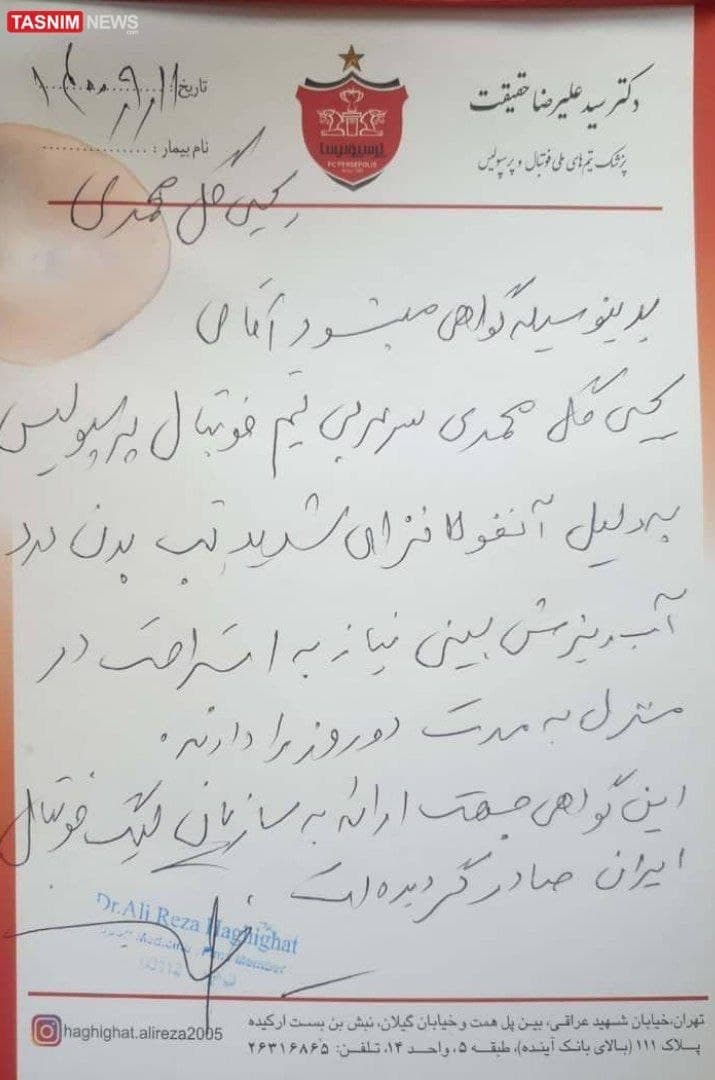 TASNIM NEWS
.com
تاریخ: ۱۴۰۰/۹/۱۱
نام بیمار: ....................
یحیی گل محمدی
پرسپولیس
FC PERSEPOLIS
دکتر سید علیرضا حقیقت
پزشک تیم‌های ملی فوتبال و پرسپولیس
بدینوسیله گواهی میشود آقای
یحیی گل محمدی سرمربی تیم فوتبال پرسپولیس
به دلیل آنفولانزای شدید تب بدن درد
آب ریزش بینی نیاز به استراحت در
منزل به مدت دو روز را دارند.
این گواهی جهت ارائه به سازمان لیگ فوتبال
ایران صادر گردیده است.
Dr.Ali Reza Haghighat
haghighat.alireza2005
تهران،خیابان شهید عراقی، بین پل همت و خیابان گیلان، نبش بن بست ارکیده
پلاک ۱۱۱ (بالای بانک آینده)، طبقه ۵، واحد ۱۴، تلفن: ۲۶۳۱۶۸۶۵